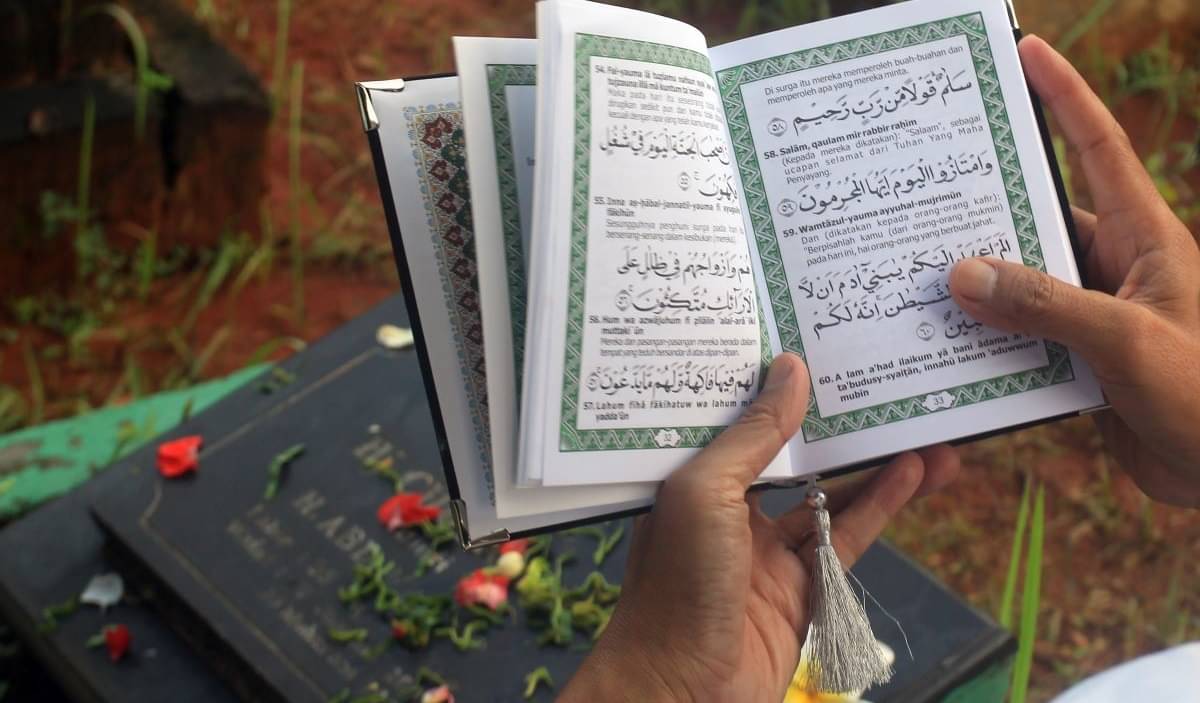 54. Fal-yauma lā tuẓlamu nafsun
tujzauna illā mā kuntum ta'malūn
Maka pada hari itu seseorang tidak
dirugikan sedikit pun dan kamu tidak
kecuali dengan apa yang telah kamu
الْجَنَّةِ الْيَوْمَ فِيْ شُغُلٍ
فٰكِهُوْنَ ۚ ٥٥
55. Inna aṣ-ḥābal-jannatil-yauma fī syugulin
fākihūn
Sesungguhnya penghuni surga pada hari itu
bersenang-senang dalam kesibukan (mereka).
هُمْ وَاَزْوَاجُهُمْ فِيْ ظِلٰلٍ عَلَى
الْاَرَاۤىِٕكِ مُتَّكِـُٔوْنَ ۚ ٥٦
56. Hum wa azwājuhum fī ẓilālin 'alal-arā'iki
muttaki'ūn
Mereka dan pasangan-pasangan mereka berada dalam
tempat yang teduh bersandar di atas dipan-dipan.
لَهُمْ فِيْهَا فَاكِهَةٌ وَّلَهُمْ مَّا يَدَّعُوْنَ ۚ ٥٧
57. Lahum fīhā fākihatuw wa lahum mā
yadda'ūn
32
Di surga itu mereka memperoleh buah-buahan dan
memperoleh apa yang mereka minta.
سَلٰمٌ قَوْلًا مِّنْ رَّبٍّ رَّحِيْمٍ ٥٨
58. Salām, qaulam mir rabbir raḥīm
(Kepada mereka dikatakan): "Salaam", sebagai
ucapan selamat dari Tuhan Yang Maha
Penyayang.
وَامْتَازُوا الْيَوْمَ اَيُّهَا الْمُجْرِمُوْنَ ٥٩
59. Wamtāzul-yauma ayyuhal-mujrimūn
Dan (dikatakan kepada orang-orang kafir):
"Berpisahlah kamu (dari orang-orang mukmin)
pada hari ini, hai orang-orang yang berbuat jahat.
اَلَمْ اَعْهَدْ اِلَيْكُمْ يٰبَنِيْٓ اٰدَمَ اَنْ لَّا
الشَّيْطٰنَ اِنَّهٗ لَكُمْ
٦٠
60. A lam a'had ilaikum yā banī ādama al
ta'budusy-syaiṭān, innahū lakum 'aduwwum
mubīn
33